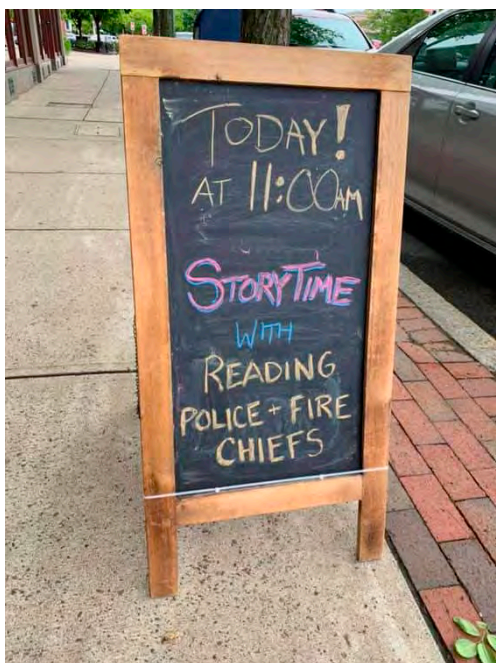 TODAY!
AT 11:00AM
STORYTIME
WITH
READING
POLICE + FIRE
CHIEFS